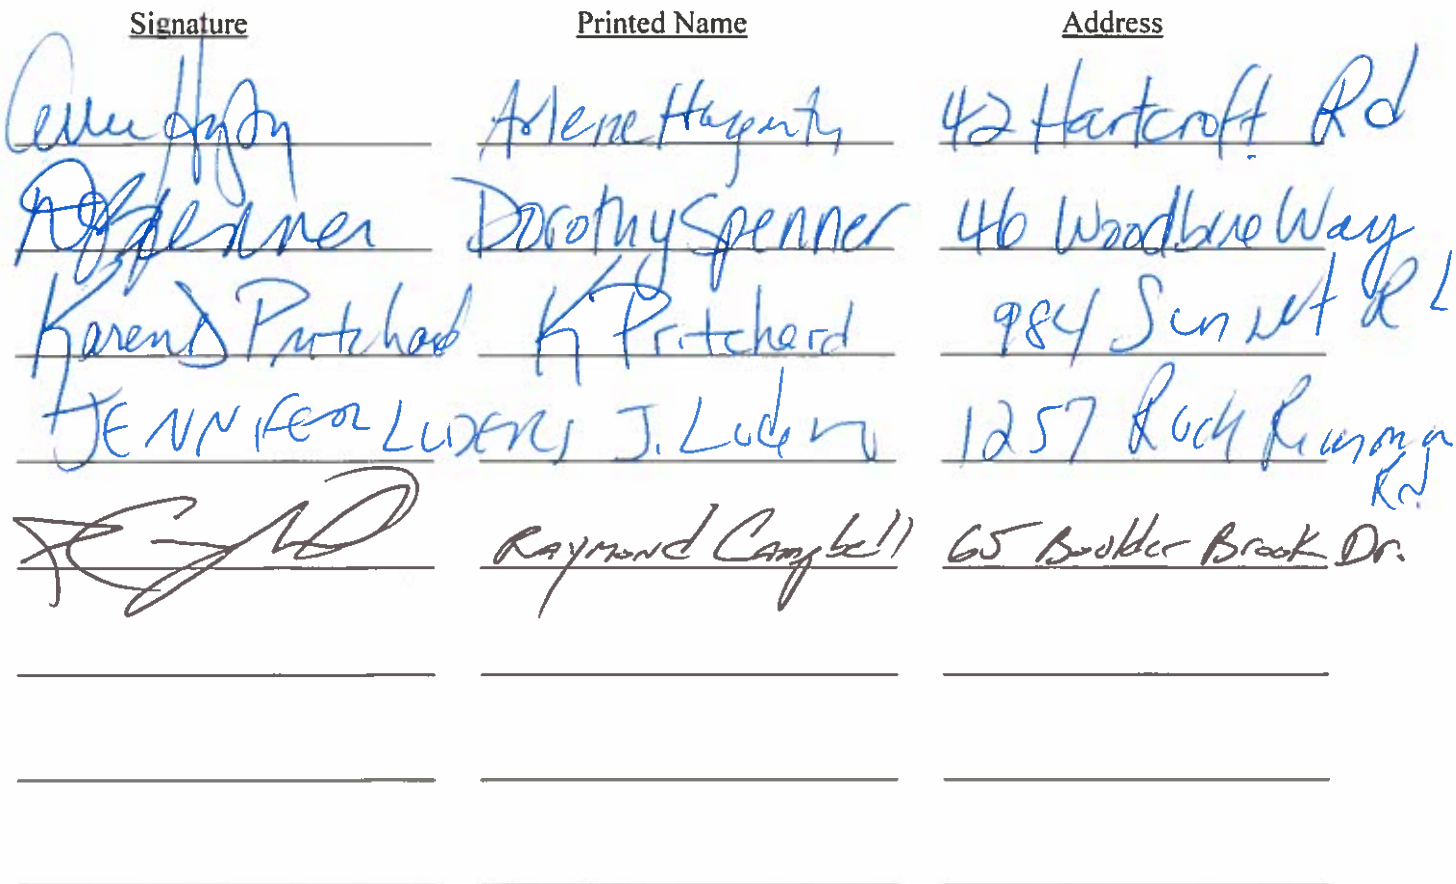 Signature Printed Name Address
Arlene Hagerty 42 Hartcroft Rd
DSpenner Dorothy Spenner 46 Woodbine Way
Karen D Pritchard K Pritchard 984 Sunset Rd
JENNIFER LUDERS J. Luders 1257 Rock Rimmon
Rd
Raymond Campbell 65 Boulder Brook Dr.